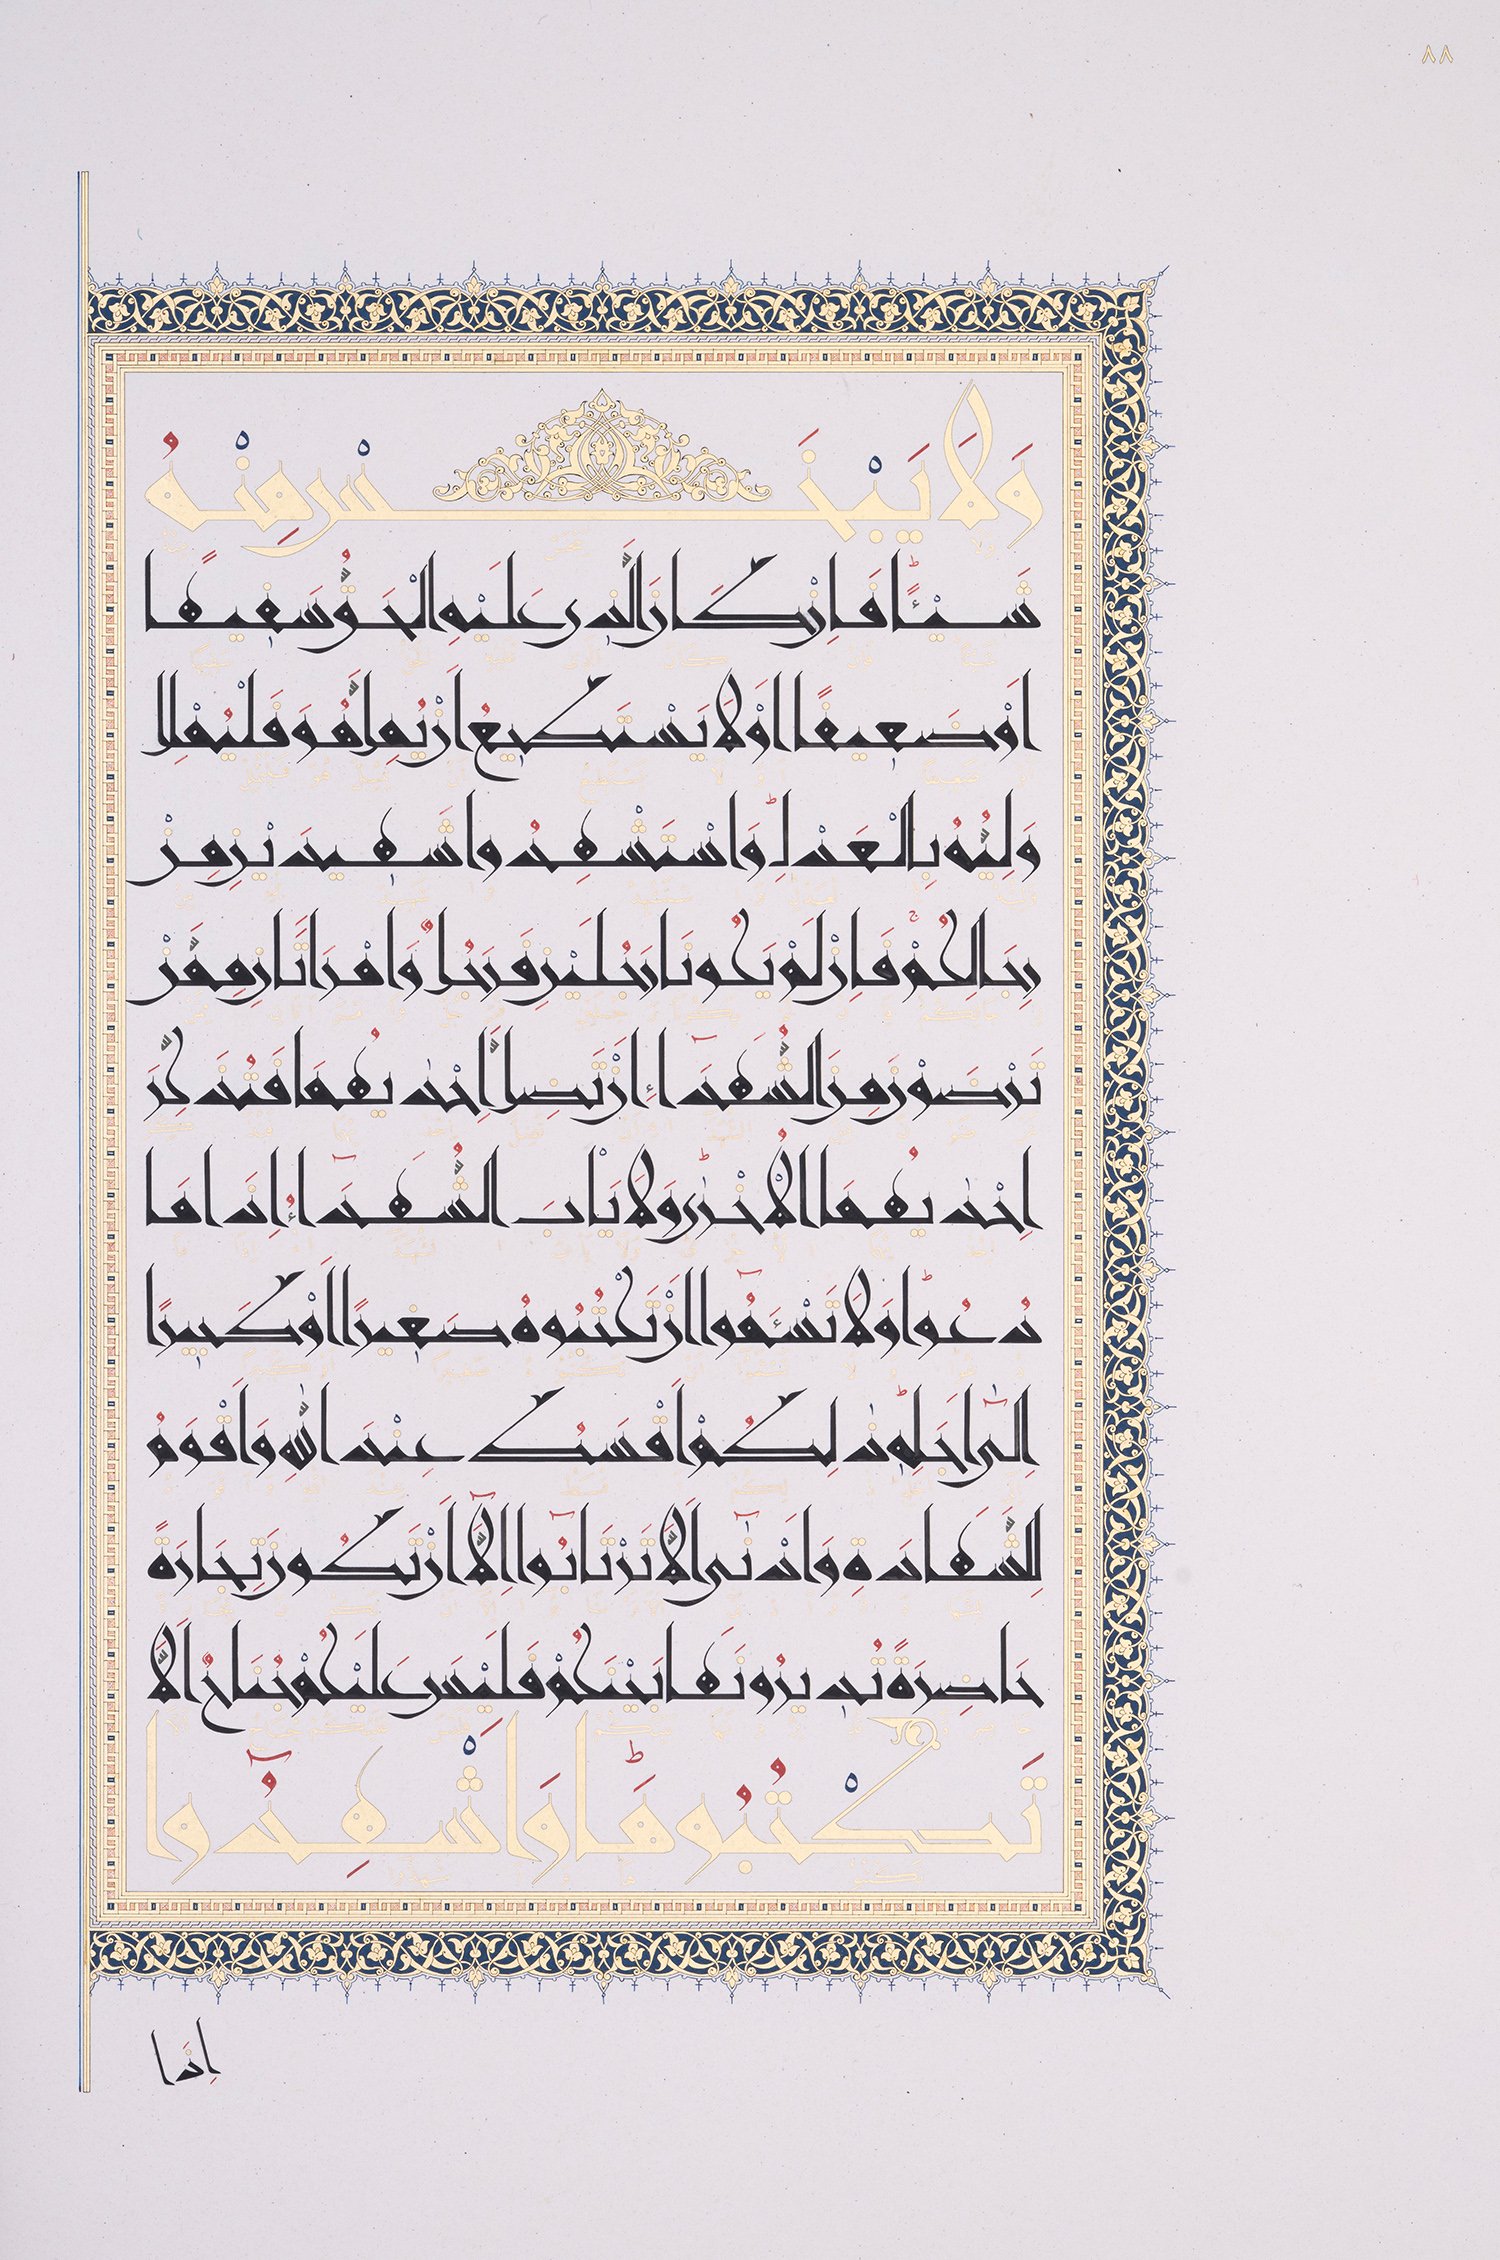 ٨٨
وَلَا يَبْخَسْ مِنْهُ
شَيْئًا فَاِنْ كَانَ الَّذِى عَلَيْهِ الْحَقُّ سَفِيهًا
اَوْ ضَعِيفًا اَوْ لَا يَسْتَطِيعُ اَنْ يُمِلَّ هُوَ فَلْيُمْلِلْ
وَلِيُّهُ بِالْعَدْلِ وَاسْتَشْهِدُوا شَهِيدَيْنِ مِنْ
رِجَالِكُمْ فَاِنْ لَمْ يَكُونَا رَجُلَيْنِ فَرَجُلٌ وَامْرَاَتَانِ مِمَّنْ
تَرْضَوْنَ مِنَ الشُّهَدَٓاءِ اَنْ تَضِلَّ اِحْدٰيهُمَا فَتُذَكِّرَ
اِحْدٰيهُمَا الْاُخْرٰى وَلَا يَاْبَ الشُّهَدَٓاءُ اِذَا مَا
دُعُوا وَلَا تَسْئَمُٓوا اَنْ تَكْتُبُوهُ صَغِيرًا اَوْ كَبِيرًا
اِلٰٓى اَجَلِهِ ذٰلِكُمْ اَقْسَطُ عِنْدَ اللّٰهِ وَاَقْوَمُ
لِلشَّهَادَةِ وَاَدْنٰٓى اَلَّا تَرْتَابُٓوا اِلَّٓا اَنْ تَكُونَ تِجَارَةً
حَاضِرَةً تُدِيرُونَهَا بَيْنَكُمْ فَلَيْسَ عَلَيْكُمْ جُنَاحٌ اَلَّا
تَكْتُبُوهَا وَاَشْهِدُٓوا
اِذَا